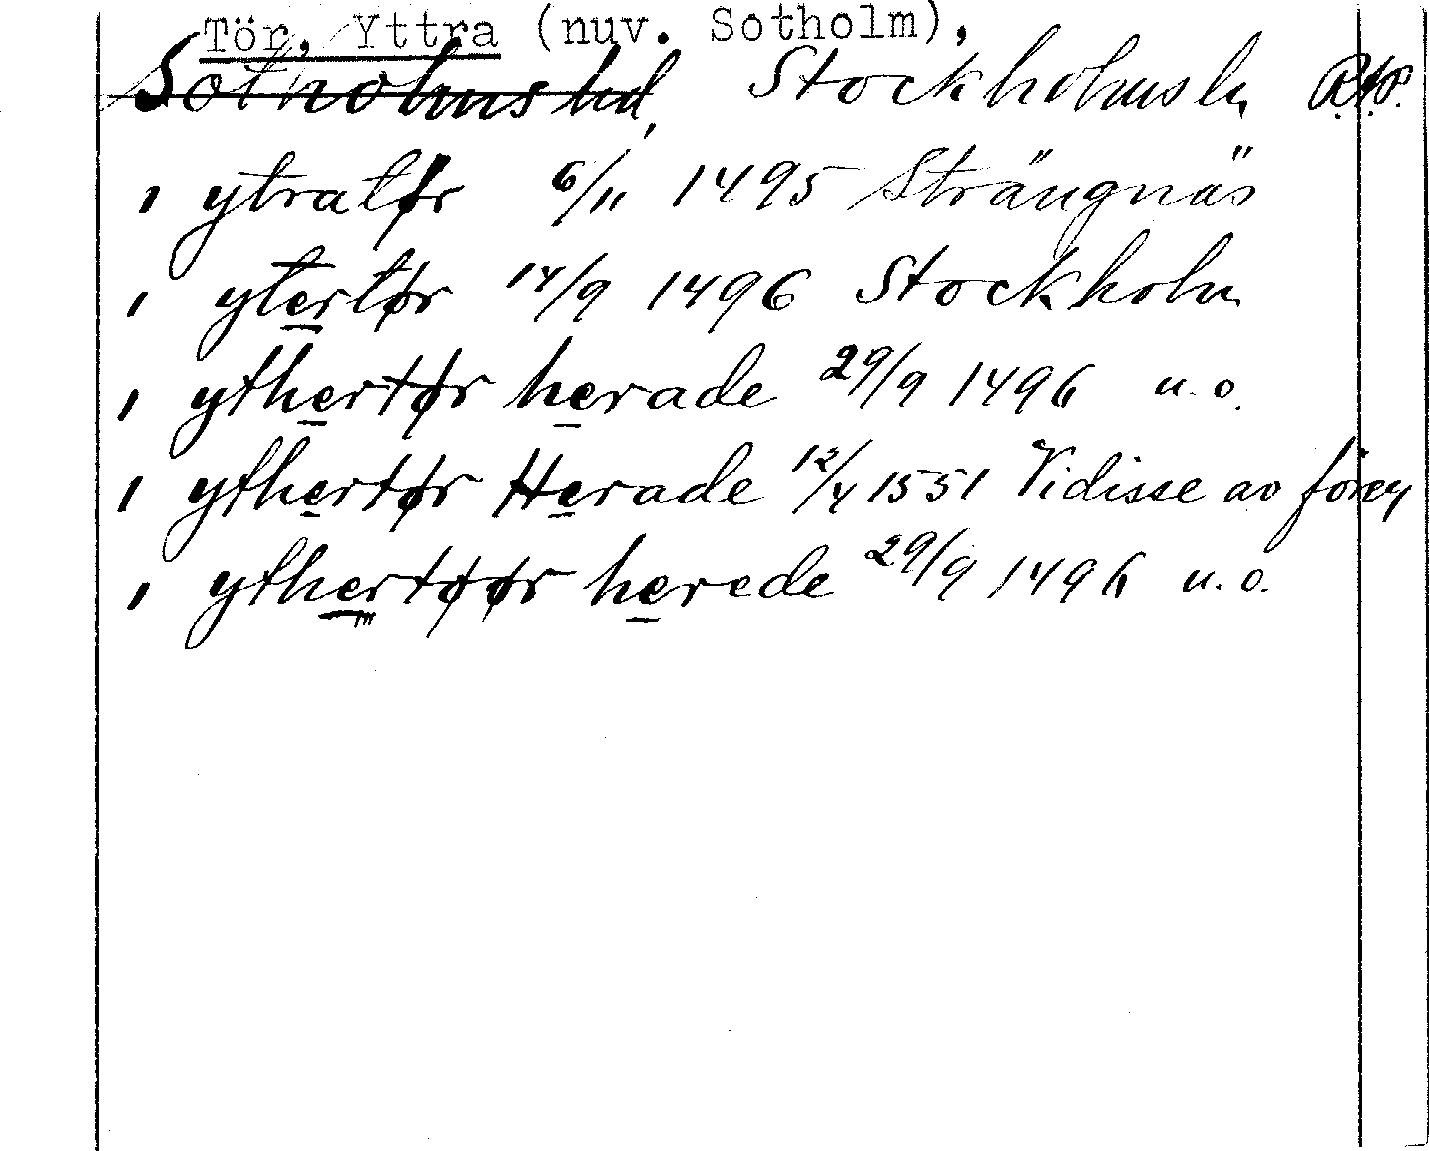 Tör, Yttra (nuv. Sotholm),
Sotholms hd, Stockholms ln R.A.P.
ı ytratør 6/11 1495 Strängnäs
ı ytertør 14/9 1496 Stockholm
ı ythertør herade 29/9 1496 u.o.
ı ythertør Herade 12/4 1551 Vidisse av föreg
ı ythertøør herede 29/9 1496 u.o.